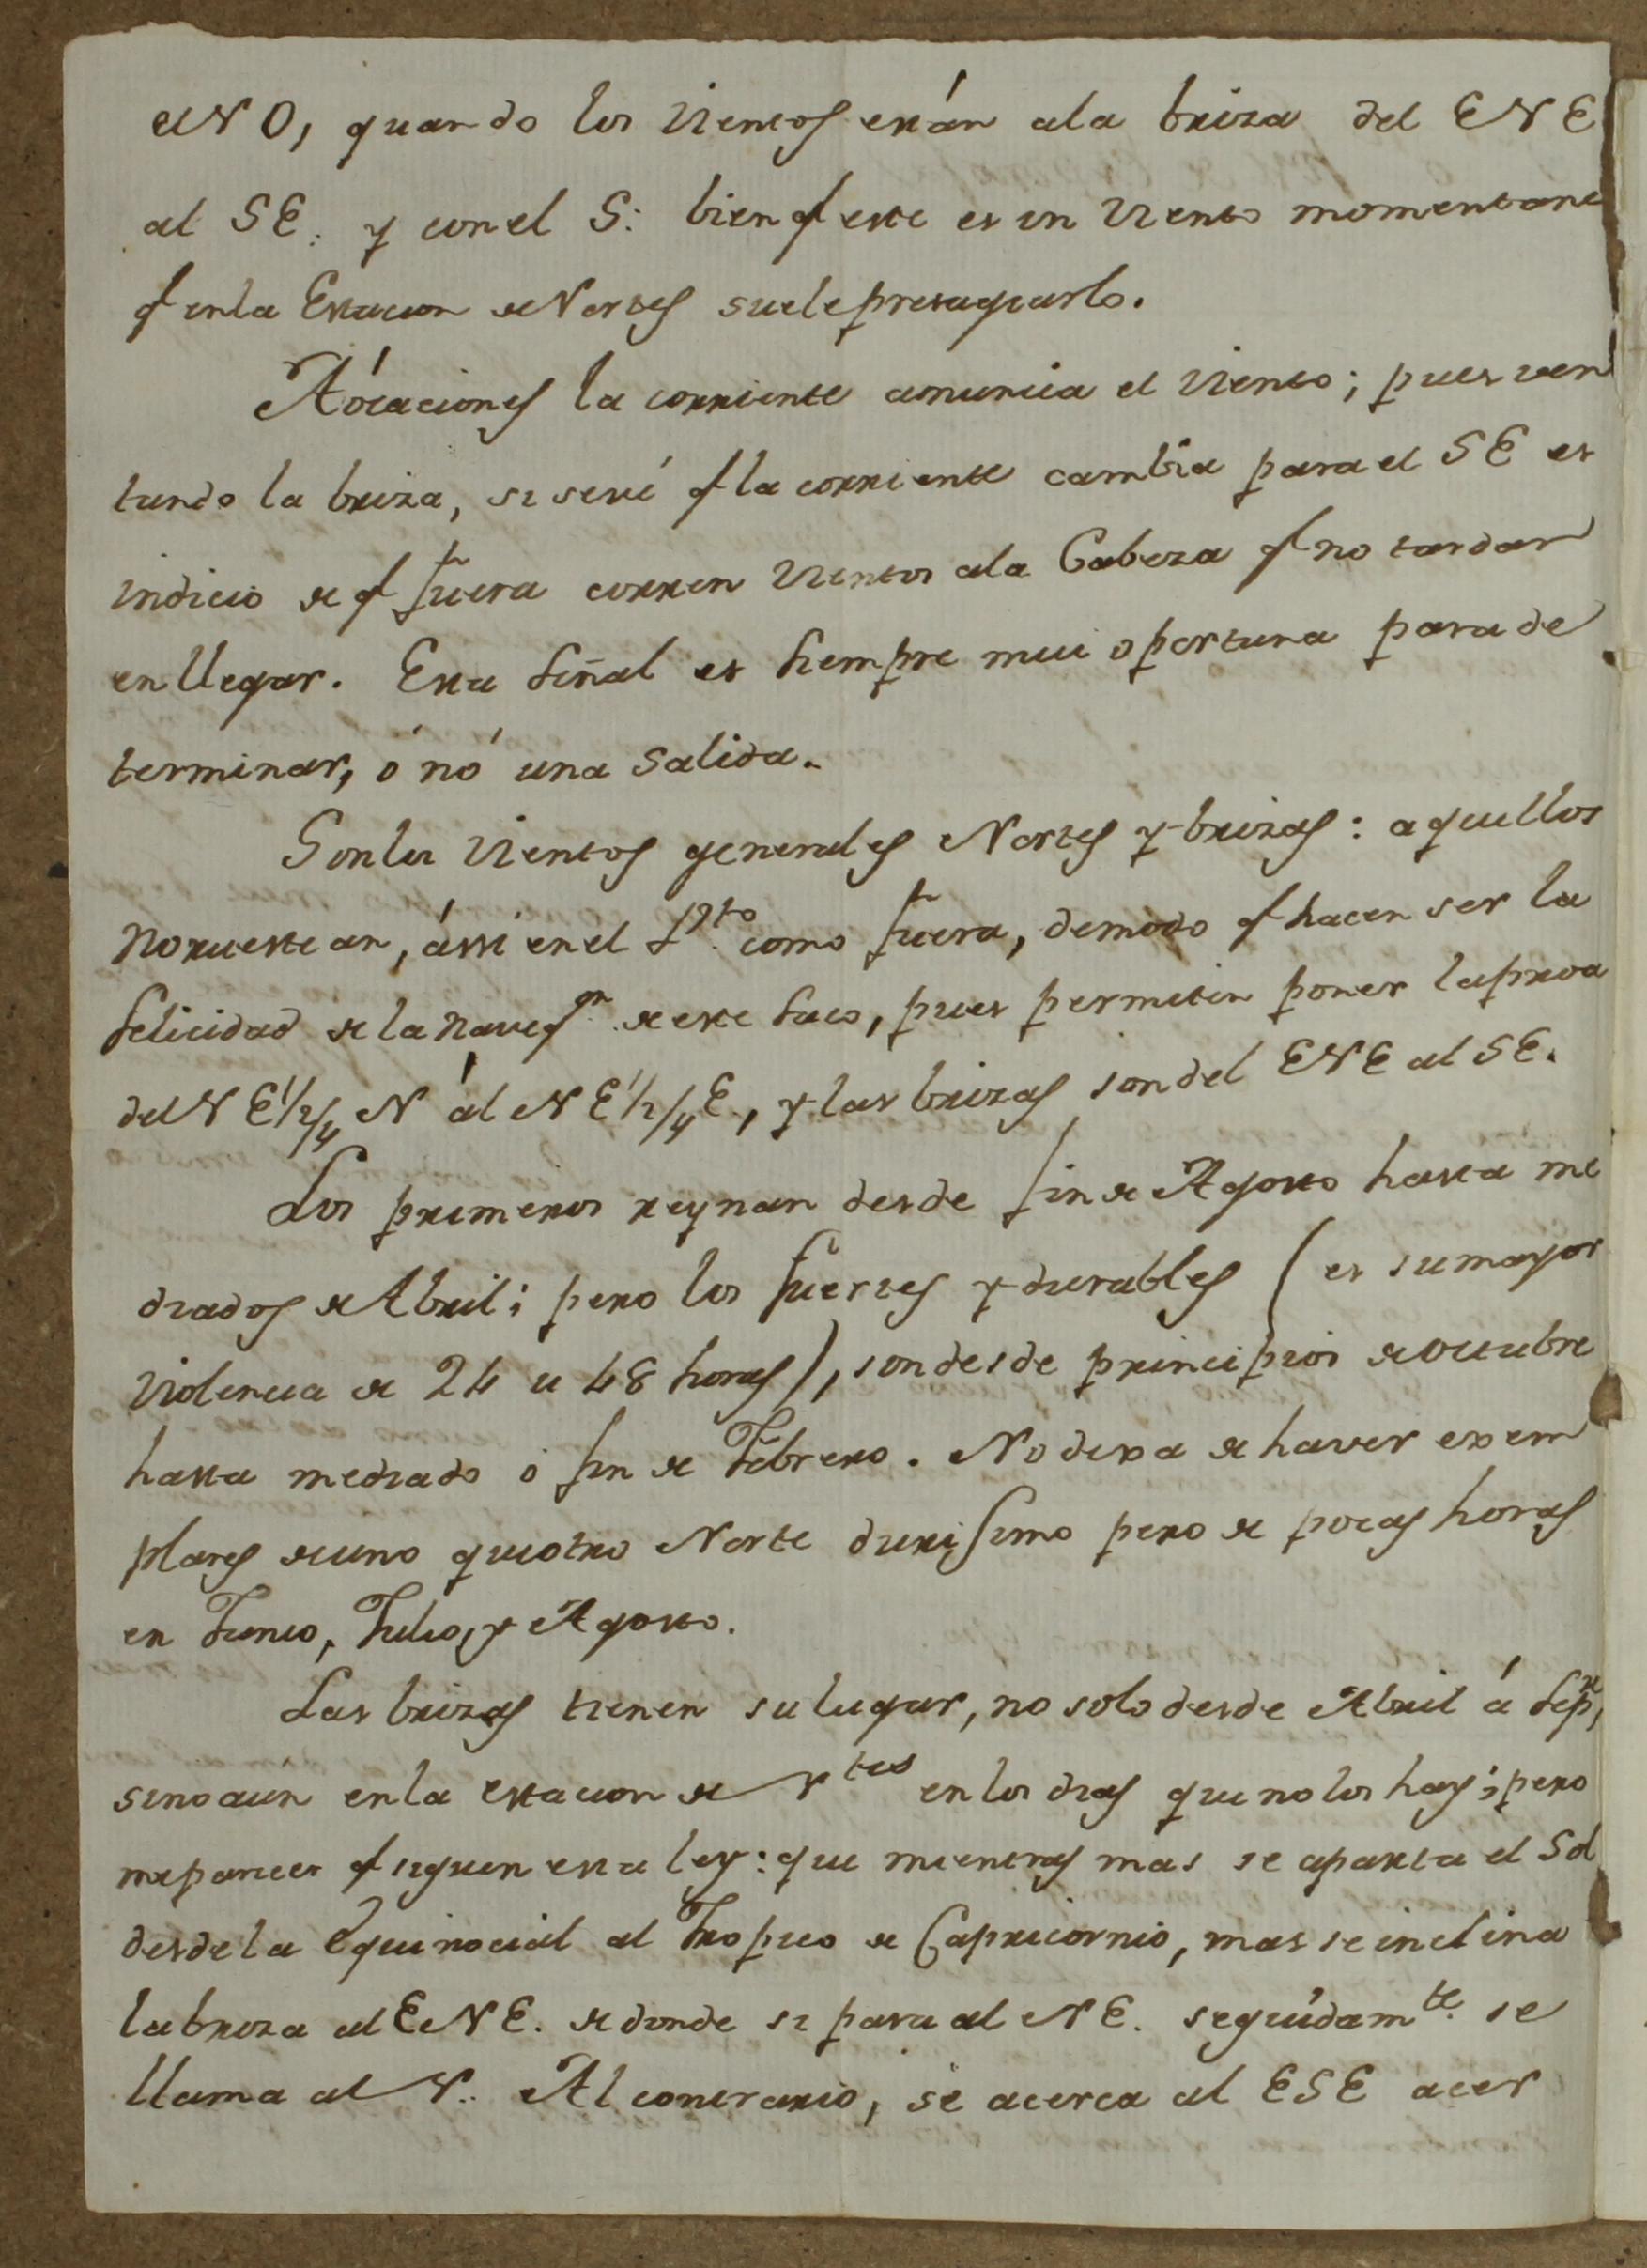 el NO, quando los vientos están ala briza del ENE
al SE. y con el S: bien q̃ este es un viento momentane
q̃ en la Estacion de Nortes suele presagiarlo.
A'ocaciones la corriente anuncia el viento; pues ven
tando la briza, si se vé q̃ la corriente cambia para el SE es
indicio de q̃ fuera corren vientos ala Cabeza q̃ no tardar
en llegar. Esta señal es siempre mui oportuna para de
terminar, ó nó una salida.
Son los vientos generales Nortes y brizas: aquellos
Noruestean, ássi en el como fuera, de modo q̃ hacen ser la
felicidad de la naveg.n de este saco, pues permiten poner la proa
del NE1/2/4 N ál NE1/2/4 E., y las brizas son del ENE al SE.
Los primeros reynan desde fin de Agosto hasta me
diados de Abril; pero los fuertes y durables (es su mayor
violencia de 24 a 48 horas), son desde principios de octubre
hasta mediado ó fin de Febrero. No dexa de haver exem
plares de uno que otro Norte durissimo pero de pocas horas
en Junio, Julio, y Agosto.
Las brizas tienen su lugar, no solo desde Abril á Sep.re,
sino aun en la estacion de N.tes en los dias que no los hay; pero
me parece q̃ siguen esta ley: que mientras mas se aparta el Sol
desde la equinocial al Tropico de Capricornio, mas se inclina
la briza al ENE. de donde si para al NE. seguidam.te se
llama al N.. Al contrario, se acerca al ESE acer